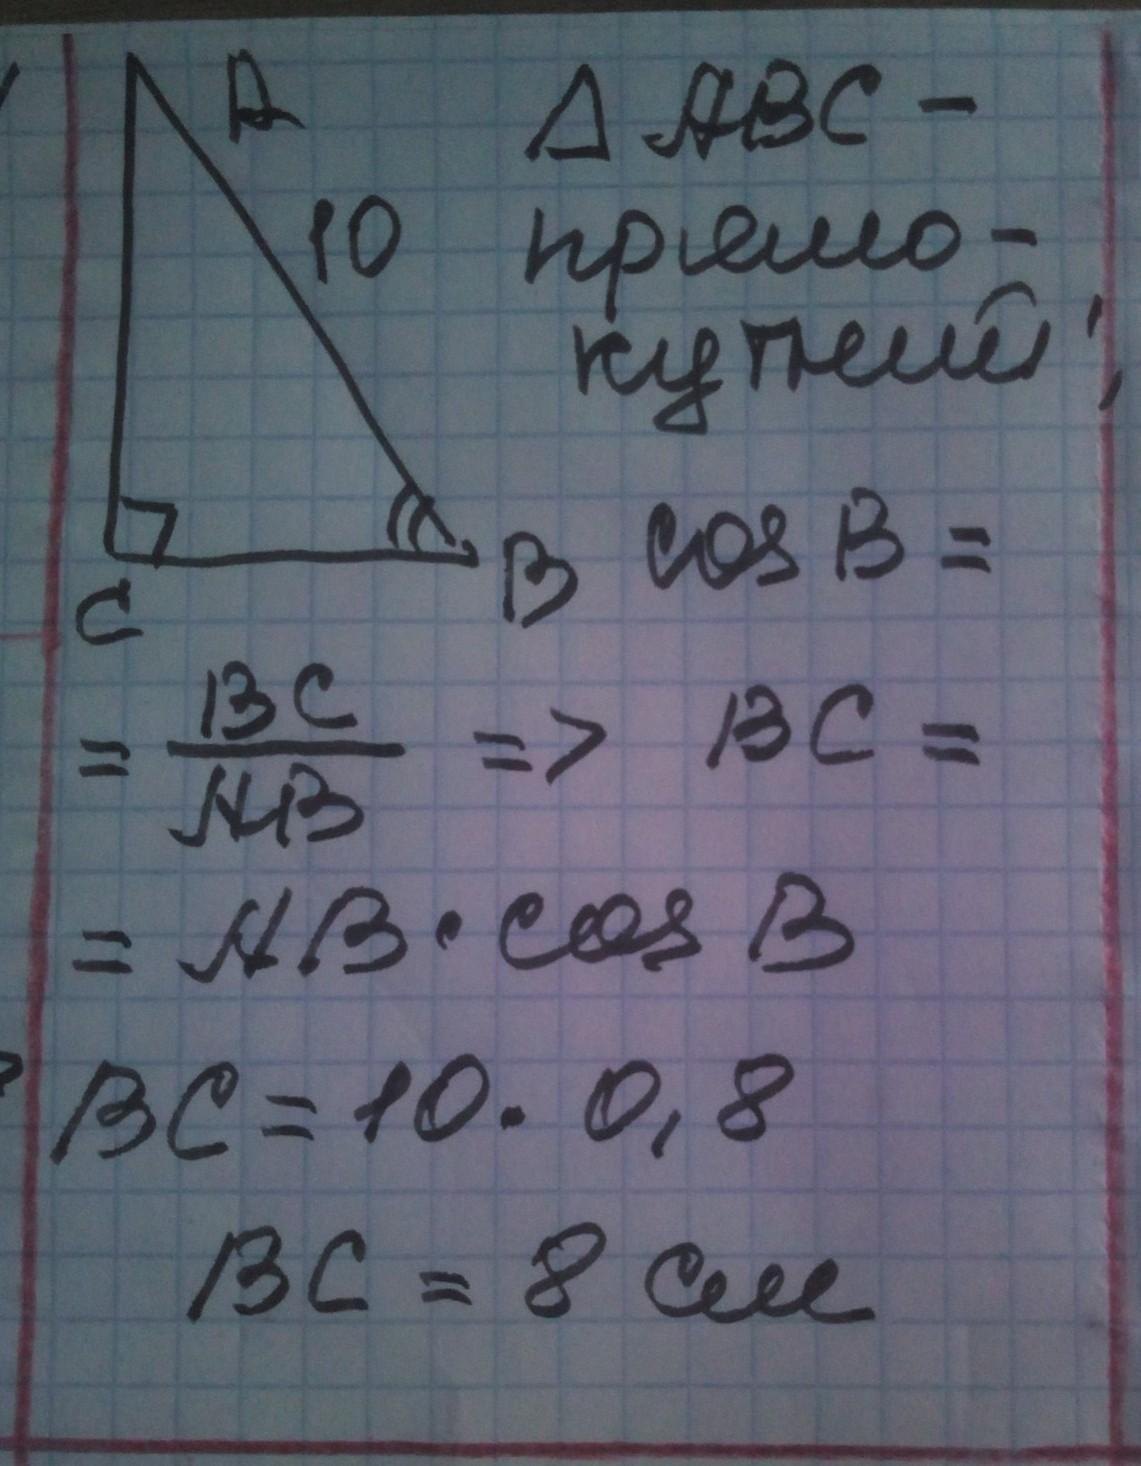 A
10
C
B
Δ ABC -
прямо-
кутний,
cos B =
= BC/AB => BC =
= AB · cos B
BC = 10 · 0,8
BC = 8 см